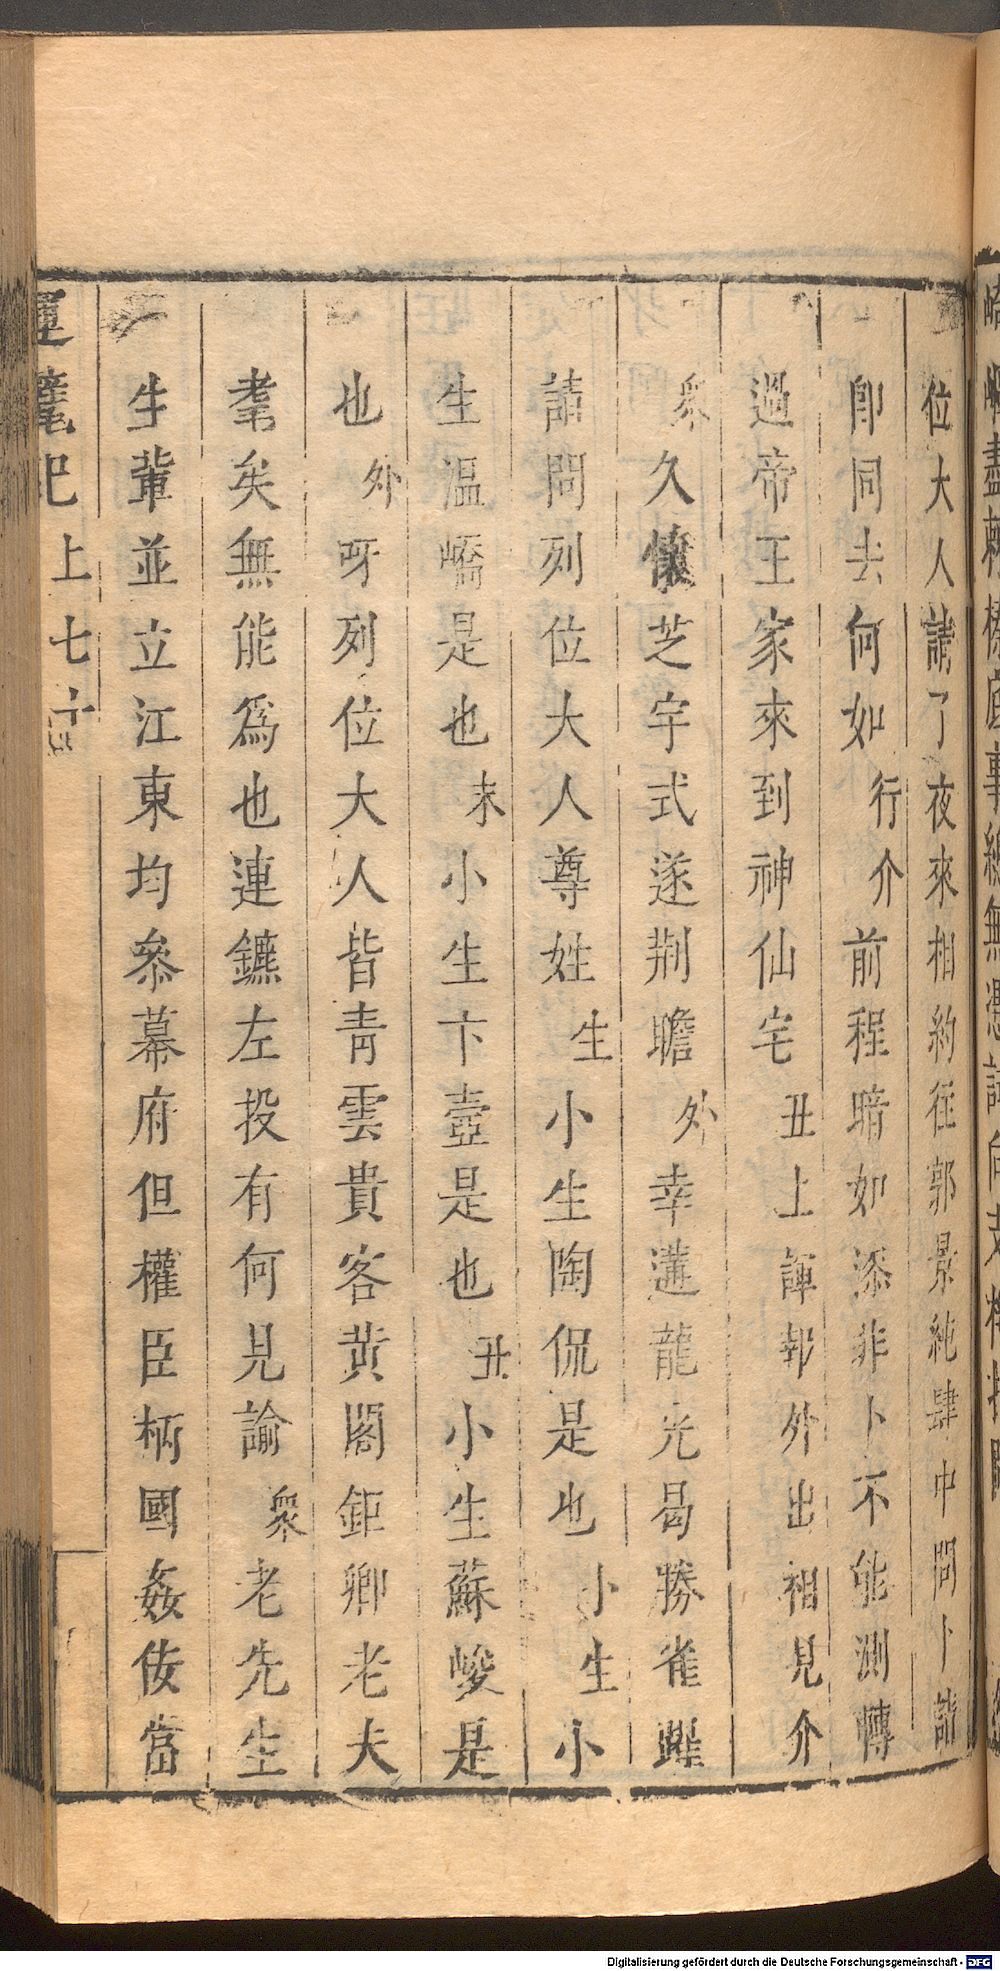 位大人請了夜來相約往郭景純肆中問卜請
卽同去何如行介前程暗如漆非卜不能測轉
過帝王家來到神仙宅丑上諢報外出相見介
衆久懷芝宇式遂荆瞻外幸遘龍光曷勝雀躍
請問列位大人尊姓生小生陶侃是也小生小
生溫嶠是也末小生卞壼是也丑小生蘇峻是
也外呀列位大人皆青雲貴客黄閣鉅卿老夫
耄矣無能爲也連鑣左投有何見諭衆老先生
生輩並立江東均叅幕府但權臣柄國姦佞當
運甓記上七十
Digitalisierung gefördert durch die Deutsche Forschungsgemeinschaft - DFG